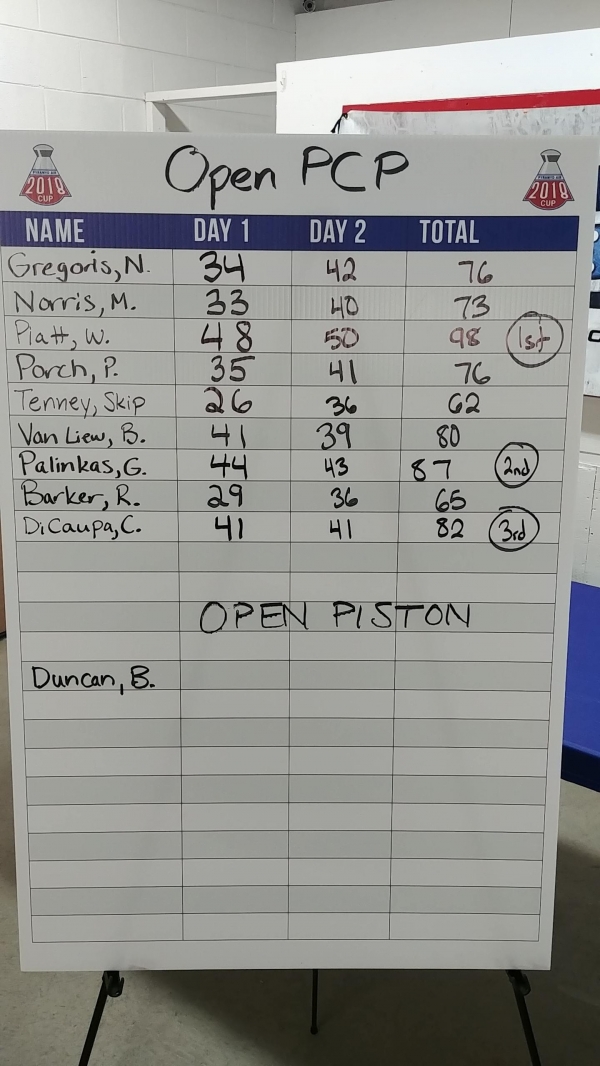 Open PCP
PYRAMYD AIR 2018 CUP
PYRAMYD AIR 2018 CUP
NAME DAY 1 DAY 2 TOTAL
Gregoris, N. 34 42 76
Norris, M. 33 40 73
Piatt, W. 48 50 98 1st
Porch, P. 35 41 76
Tenney, Skip 26 36 62
Van Liew, B. 41 39 80
Palinkas, G. 44 43 87 2nd
Barker, R. 29 36 65
DiCaupa, C. 41 41 82 3rd
OPEN PISTON
Duncan, B.